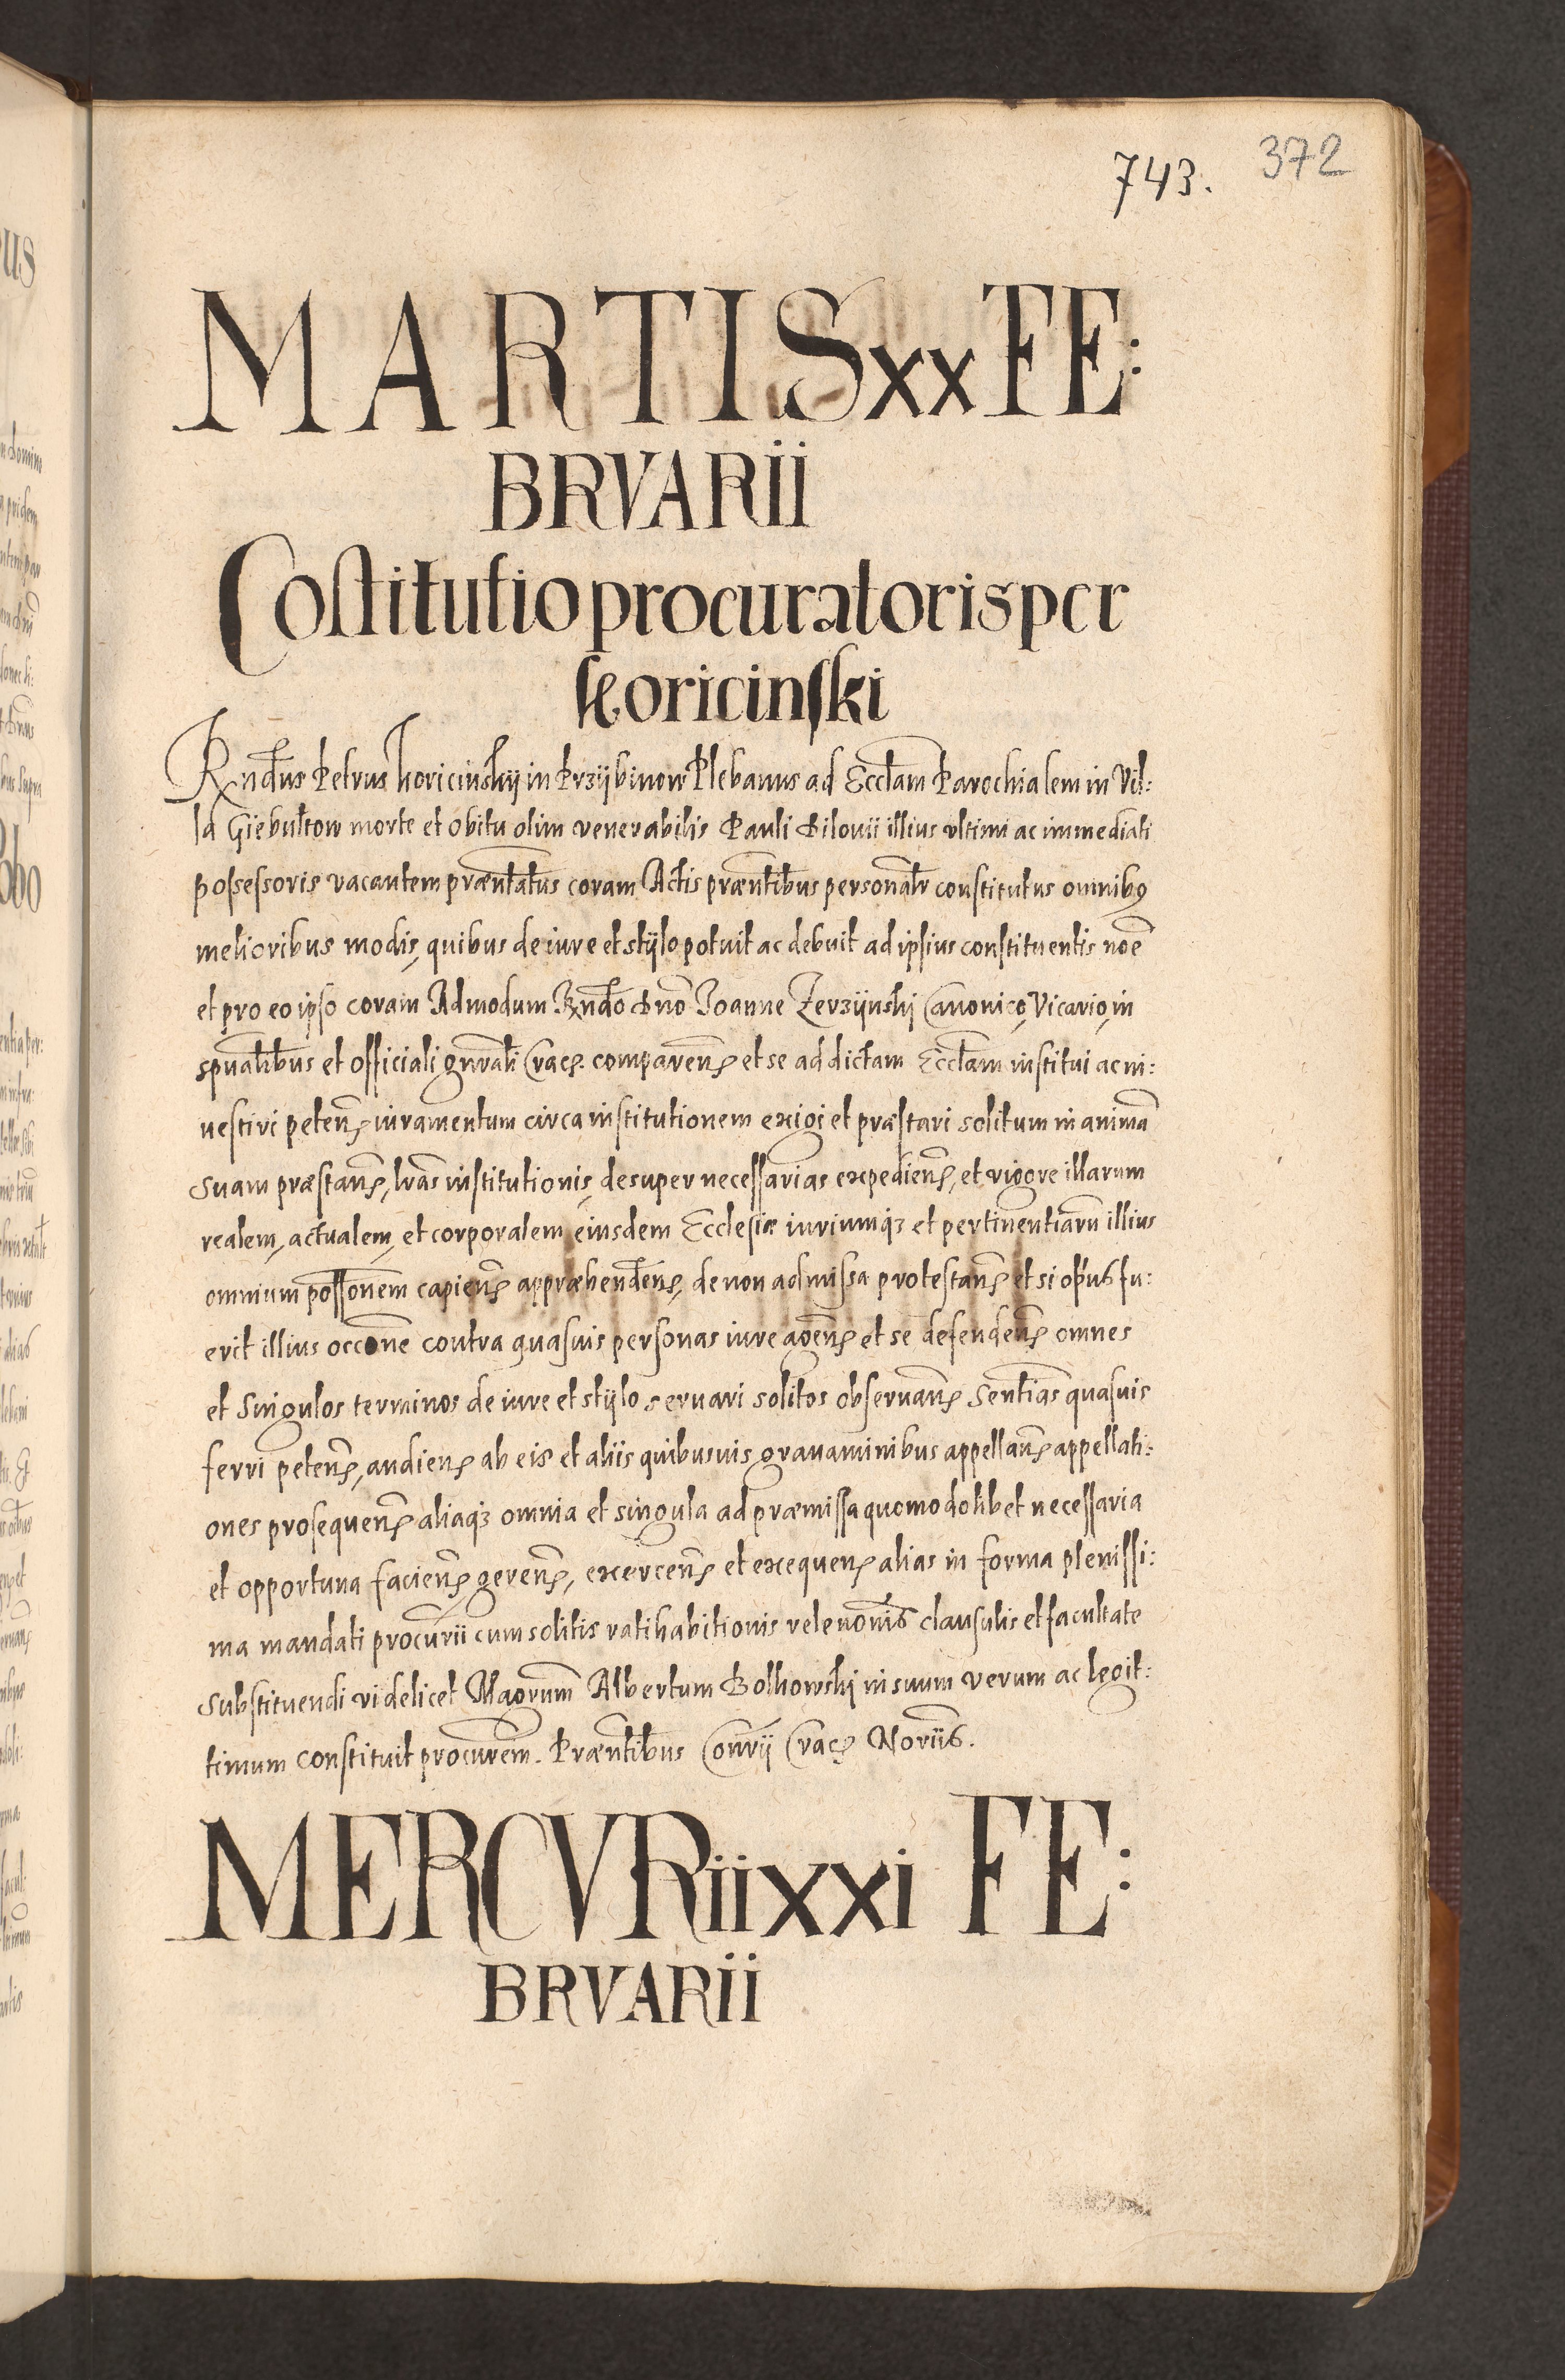 743. 372
MARTIS xx FE:
BRVARii
Costitutio procuratoris per
koricinski
Rndus Petrus koricinskij in Przÿbinow Plebanus ad Ecclam Parochialem in Vil:
la Giebultow morte et obitu olim venerabilis Pauli Silouii illius vltimi ac immediati
possessoris vacantem præntatus coram Actis præntibus personalr constitutus omnibus
melioribus modis, quibus de iure et stÿlo potuit ac debuit ad ipsius constituentis noe
et pro eo ipso coram Admodum Rndo Dno Joanne Zerzÿnski Canonico, Vicario, in
spualibus et officiali gnrali Crac. comparen. et se ad dictam Ecclam institui ac in:
uestiri peten. iuramentum circa institutionem exigi et præstari solitum in anima
suam præstan., lras institutionis, desuper necessarias expedien., et vigore illarum
realem, actualem, et corporalem eiusdem Ecclesiæ iuriumq3 et pertinentiaru illius
omnium possonem capien. appræhenden., de non admissa protestan. et si opus fu:
erit illius occone contra quasuis personas iure agen. et se defenden. omnes
et singulos terminos de iure et stÿlo seruari solitos obseruan. sentias quasuis
ferri peten., audien. ab eis et aliis quibusuis grauaminibus appellan. appellati:
ones prosequen. aliaq3 omnia et singula ad præmissa quomodolibet necessaria
et opportuna facien. geren., exercen. et exequen. alias in forma plenissi:
ma mandati procurii cum solitis ratihabitionis releuonis clausulis et facultate
substituendi videlicet Magrum Albertum Bolkowski in suum verum ac legit:
timum constituit procurem. Præntibus Conrii Crac. Noriis.
MERCVRii xxi FE:
BRVARii